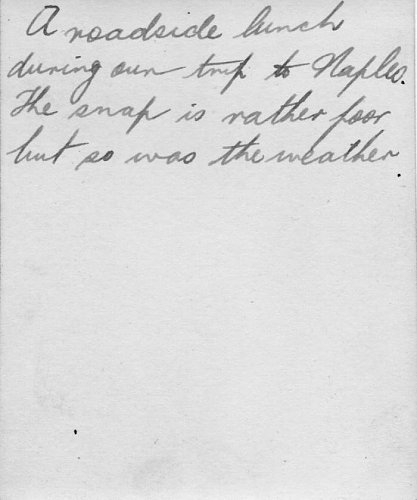 A roadside lunch
during our trip to Naples.
The snap is rather poor
but so was the weather.